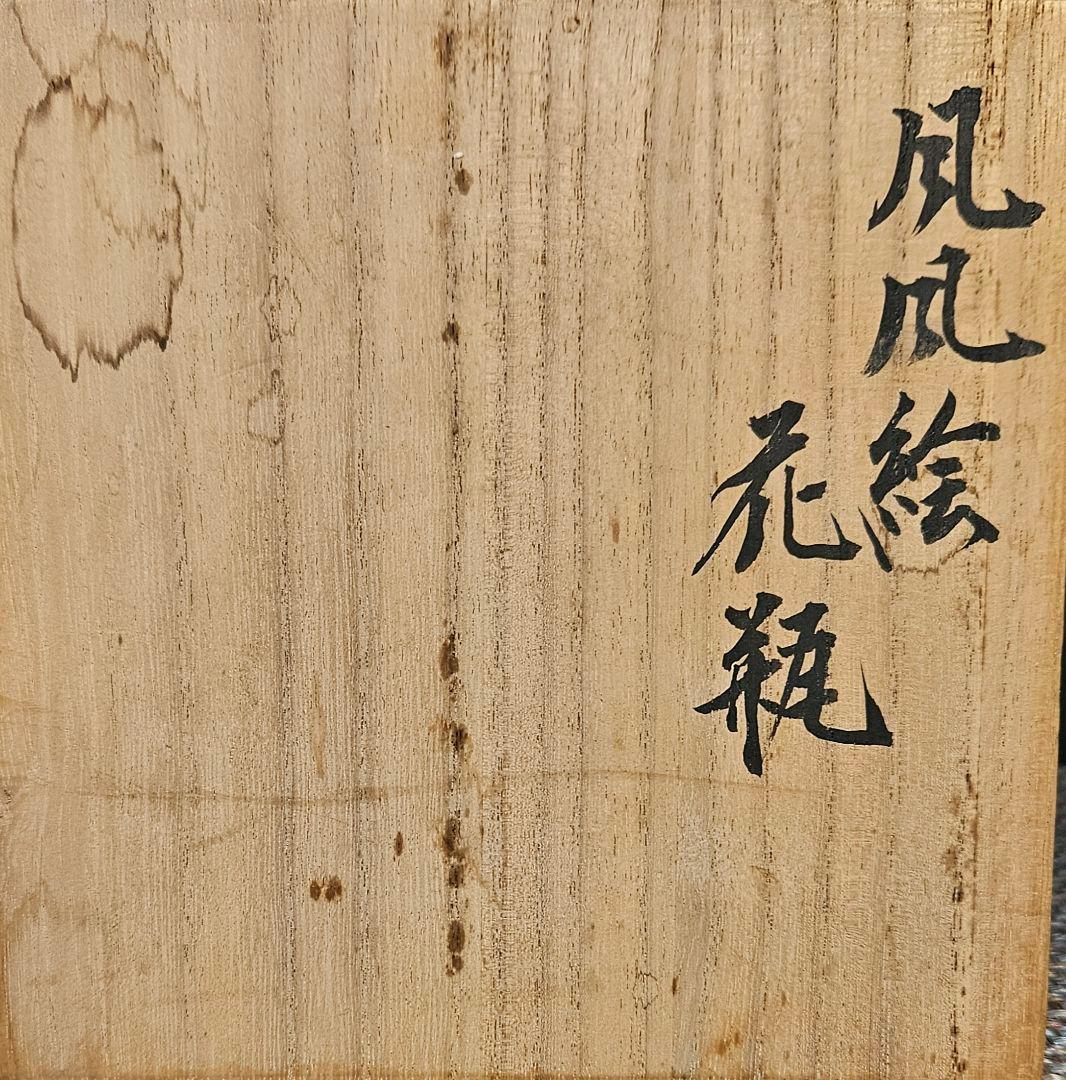 鳳凰絵
花瓶